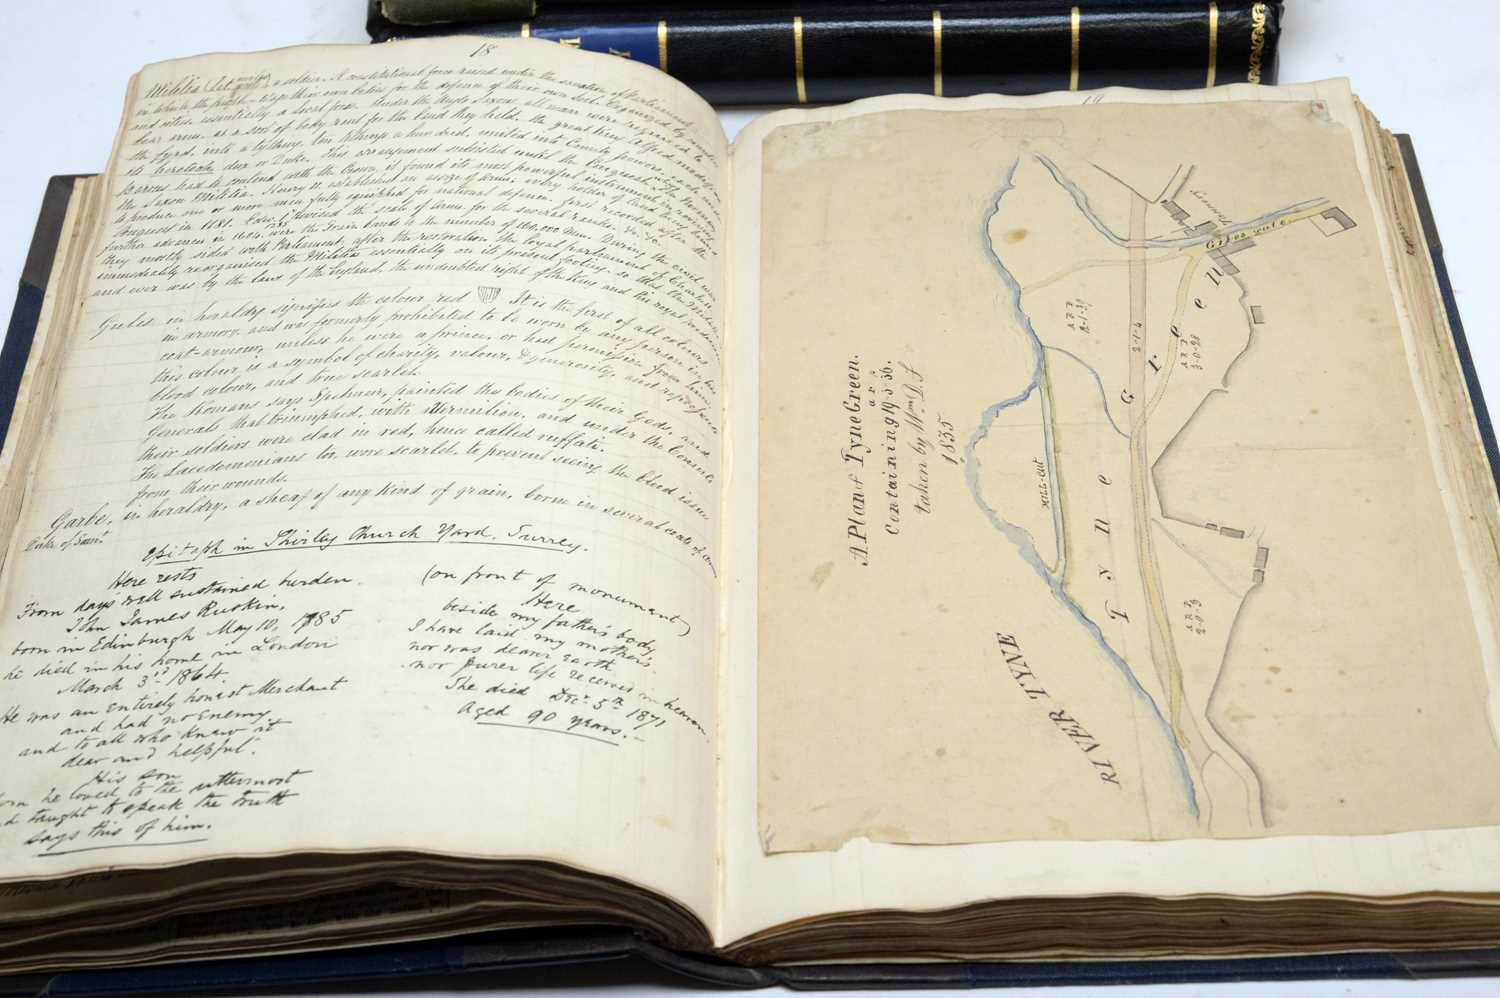 18
Militia (Lat miles a soldier. A constitutional force raised under the sanction of Parliament
in which the people their own bodies for the defence of their own soil. Organized by counties
and cities, essentially a local force. Under the Anglo Saxons, all men were required to
bear arms, as a sort of body rent for the land they held. the great King Alfred
the fyrd, into a tything, ten tythings a hundred, united into County powers, each under
its heretoch, dux or Duke. This arrangement subsisted until the Conquest
Barons had to contend with the Crown, it found its most powerful instrument in
the Saxon Militia. Henry II established an assize of arms, every holder of land being
to produce one or more men fully equipped for national defence. first recorded after the
Conquest in 1181. Edw. I revised the scale of arms for the several ranks. &c. &c.
further advance in 1604, were the Train bands to the number of 160,000 men. During the civil war
they mostly sided with Parliament, after the restoration the loyal parliament of Charles II
immediately reorganised the Militia essentially on its present footing, so that the Militia
and ever was by the laws of England, the undoubted right of the King and his royal predecessors
Gules, in heraldry signifies the colour red It is the first of all colours
in armory, and was formerly prohibited to be worn by any person in his
coat-armour, unless he were a prince, or had permission from him,
this colour is a symbol of charity, valour, & generosity, and represents
blood colour, and true scarlet.
The Romans says Spelman, painted the bodies of their Gods, and
Generals that triumphed, with vermilion, and under the Consuls
their soldiers were clad in red, hence called russati.
The Lacedemonians too wore scarlet, to prevent seeing the blood issue
from their wounds.
Garbe, in heraldry, a sheaf of any kind of grain, borne in several coats of arms
Epitaph in Shirley Church Yard, Surrey.
Here rests
From day's well sustained burden
John James Ruskin,
born in Edinburgh May 10, 1785
he died in his home in London
March 3rd 1864.
He was an entirely honest Merchant
and had no enemy
and to all who knew it
dear and helpful.
His son
whom he loved to the uttermost
and taught to speak the truth
says this of him.
(on front of monument)
Here
beside my father's body
I have laid my mother's
nor was dearer earth
nor purer life received in heaven.
She died Decr 5th 1871
Aged 90 years.
19
A Plan of Tyne Green.
a r p
Containing 19 3 36.
taken by Wm D. F
1835
RIVER TYNE
MILL-CUT
Tyne Green
Giles Gate
Tannery
A R P
2-1-4
A R P
3-0-28
A R P
2-0-3